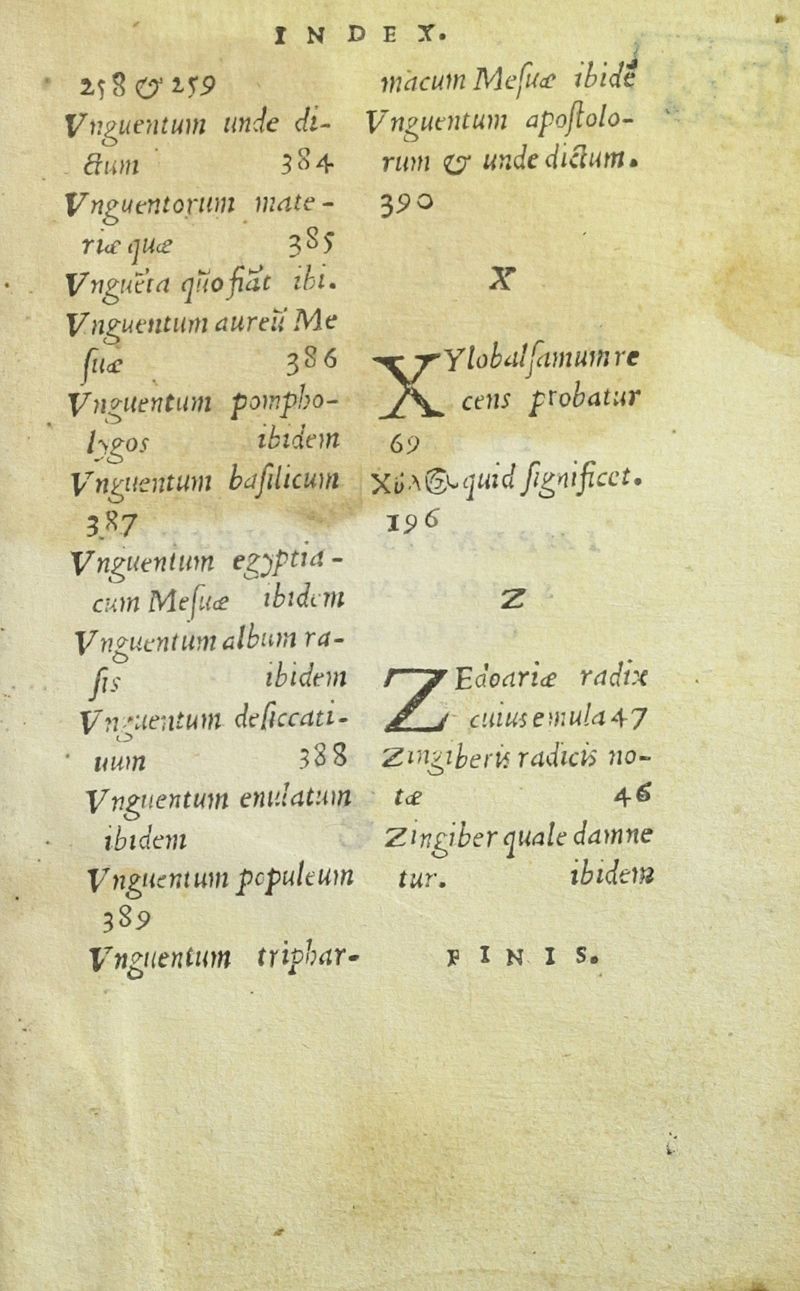 INDEX.
258 & 259
Vnguentum unde di-
ctum 384
Vnguentorum mate-
riæ quæ 385
Vnguẽta quo fiãt ibi.
Vnguentum aureũ Me
ſuæ 386
Vnguentum pompho-
lygos ibidem
Vnguentum baſilicum
387
Vnguentum egyptia-
cum Meſuæ ibidem
Vnguentum album ra-
ſis ibidem
Vnguentum deſiccati-
uum 388
Vnguentum enulatum
ibidem
Vnguentum populeum
389
Vnguentum triphar-
macum Meſuæ ibidẽ
Vnguentum apoſtolo-
rum & unde dictum.
390
X
XYlobalſamum re
cens probatur
69
quid ſignificet.
196
Z
ZEdoariæ radix
cuius emula 47
Zingiberis radicis no-
tæ 46
Zingiber quale damne
tur. ibidem
FINIS.